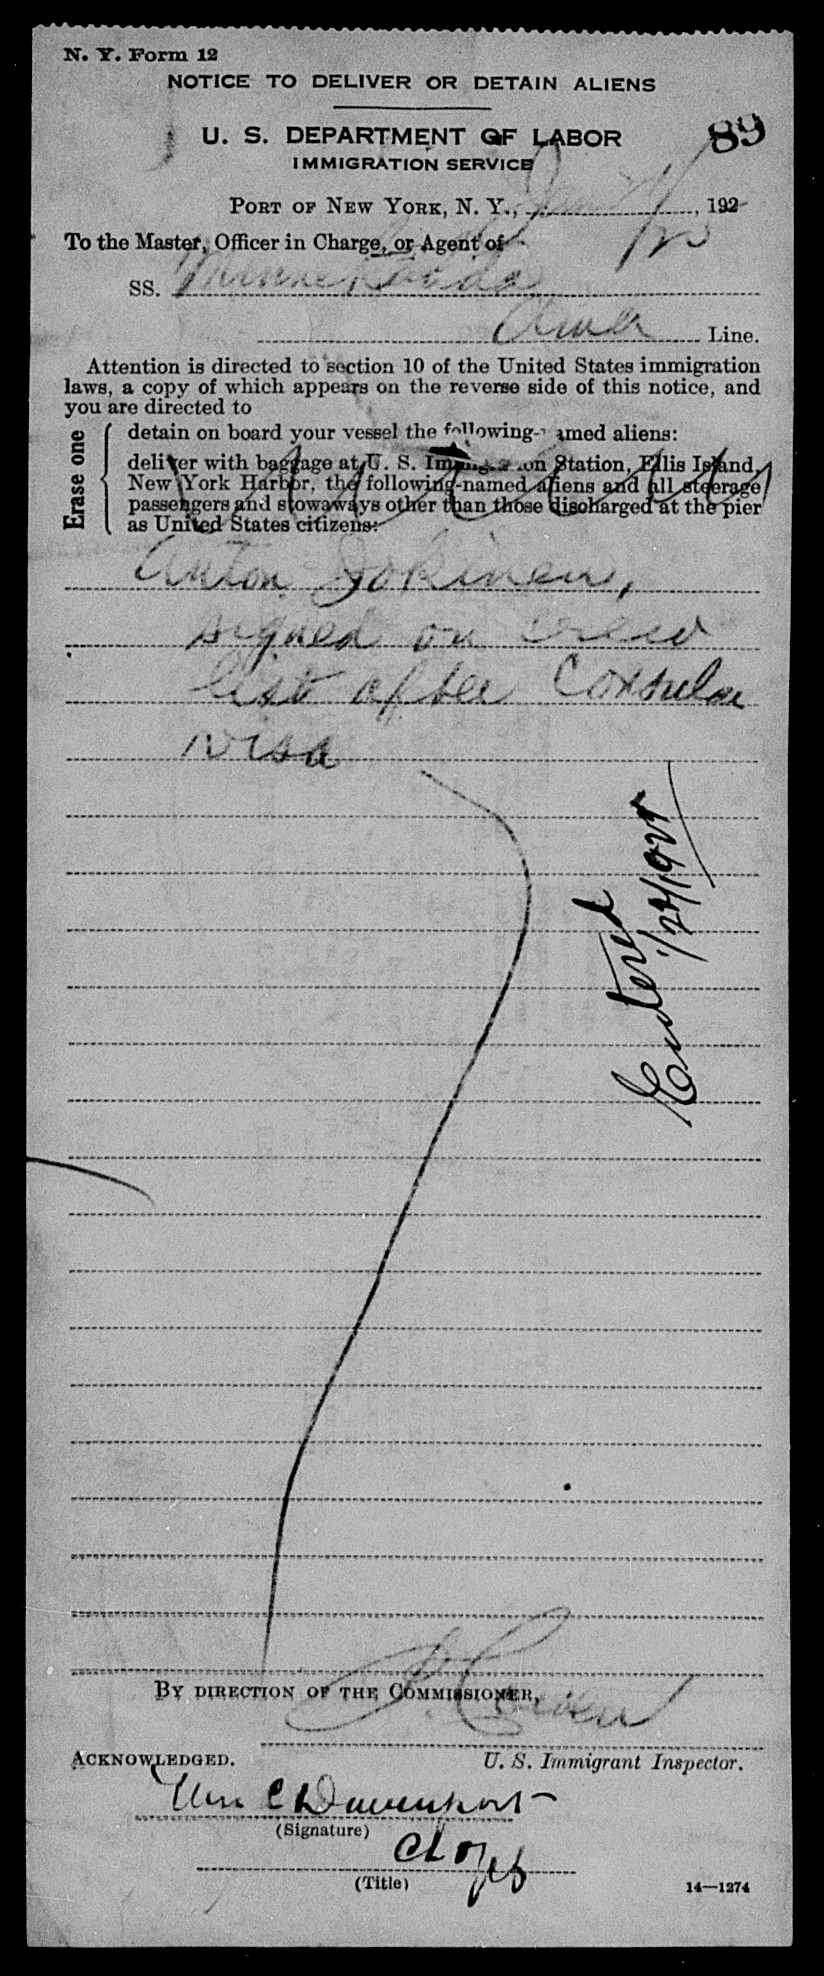 N. Y. Form 12
NOTICE TO DELIVER OR DETAIN ALIENS
U. S. DEPARTMENT OF LABOR
89
IMMIGRATION SERVICE
PORT OF NEW YORK, N. Y., Jan, 192
To the Master, Officer in Charge, or Agent of
SS. Minnekahda
Line.
Attention is directed to section 10 of the United States immigration
laws, a copy of which appears on the reverse side of this notice, and
you are directed to
Erase one
detain on board your vessel the following-named aliens:
deliver with baggage at U. S. Immigration Station, Ellis Island,
New York Harbor, the following-named aliens and all steerage
passengers and stowaways other than those discharged at the pier
as United States citizens:
Anton Jokinen,
signed on crew
list after Consular
visa
Entered
BY DIRECTION OF THE COMMISSIONER,
ACKNOWLEDGED.
U. S. Immigrant Inspector.
Wm C Davenport
(Signature)
(Title)
14—1274